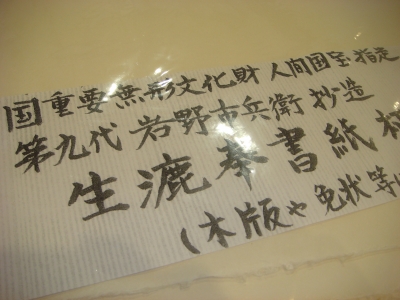 国重要無形文化財 人間国宝 指定
第九代 岩野市兵衛 抄造
生漉奉書紙
(木版や免状等